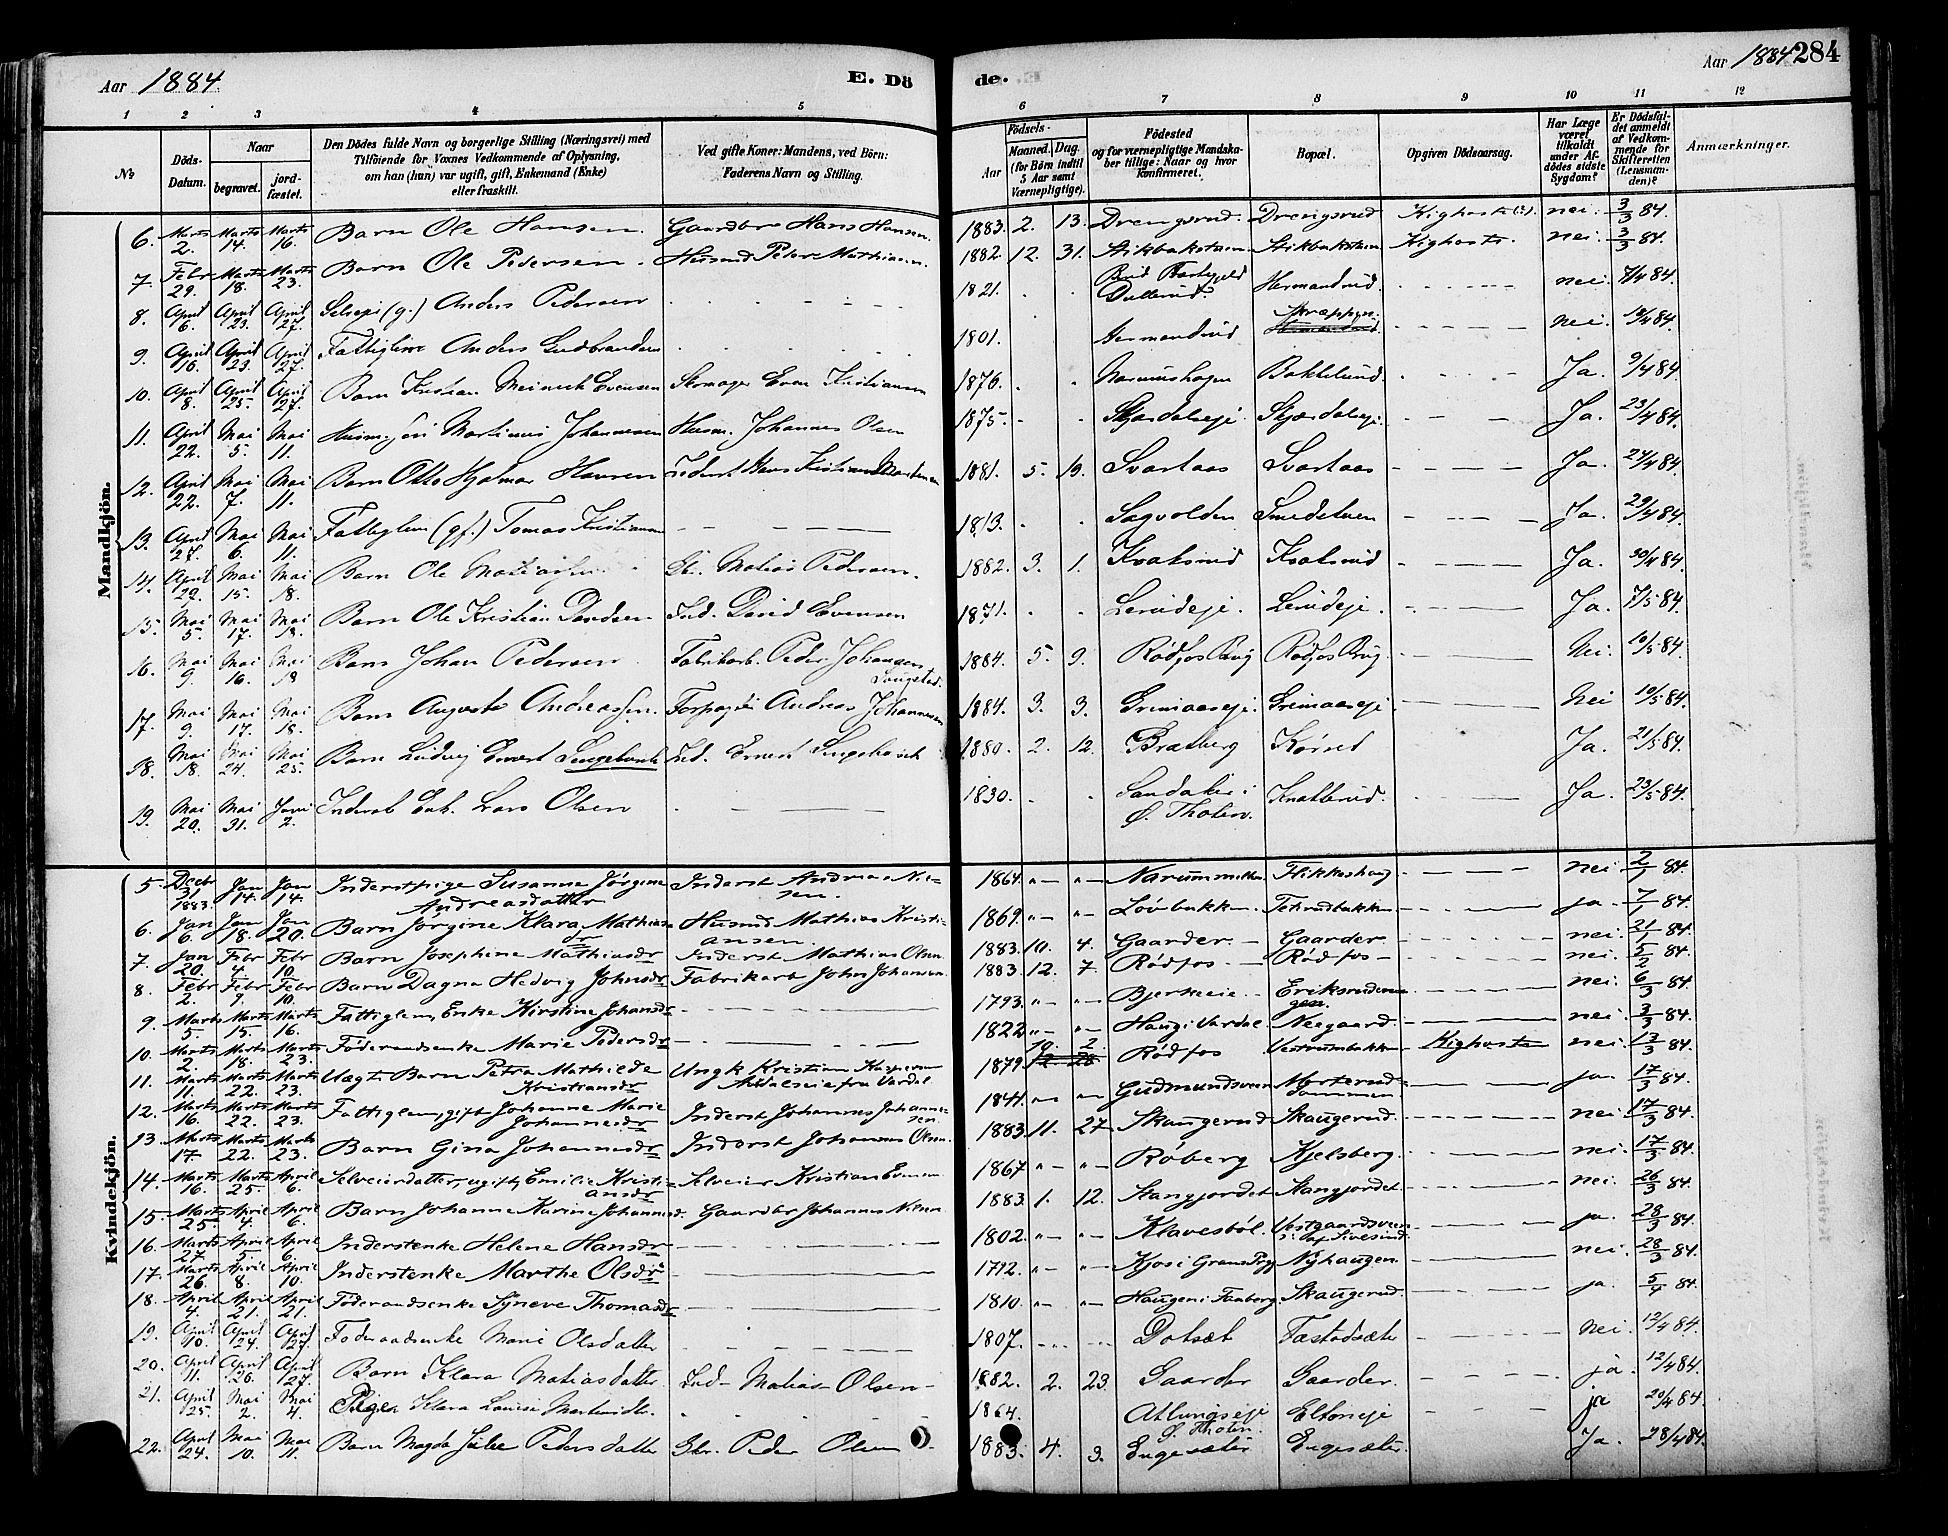 Aar 1884. E. Dö de. Aar 1884 284
1 2 3 4 5 6 7 8 9 10 11 12
No.
Döds-Datum.
Naar
begravet.
jord-fæstet.
Den Dödes fulde Navn og borgerlige Stilling (Næringsvei) med
Tilföiende for Voxnes Vedkommende af Oplysning,
om han (hun) var ugift, gift, Enkemand (Enke)
eller fraskilt.
Ved gifte Koner: Mandens, ved Börn:
Faderens Navn og Stilling.
Födsels-
Aar
Maaned. Dag.
(for Börn indtil
5 Aar samt
Værnepligtige).
Födested
og for værnepligtige Mandska-
ber tillige: Naar og hvor
konfirmeret.
Bopæl.
Opgiven Dödsaarsag.
Har Læge
været
tilkaldt
under Af-
dödes sidste
Sygdom?
Er Dödsfal-
det anmeldt
af Vedkom-
mende for
Skifteretten
(Lensman-
den)?
Anmærkninger.
Mandkjön.
6. Marts 2. Marts 14. Marts 16. Barn Ole Hansen. Gaardbr Hans Hansen. 1883. 2. 13. Drengsrud. Drengsrud Kighoste nei. 3/3 84.
7. Febr 29. Marts 18. Marts 23. Barn Ole Pedersen. Husmd Peder Mathiasen. 1882. 12. 31. Kighoste. nei. 3/3 84.
8. April 6. April 23. April 27. Selveier (g.) Anders Pedersen 1821. Hermandrud. nei. 7/4 84.
9. April 6. April 23. April 27. Fattiglem Anders Gudbrandsen 1801. Hermandrud nei. 10/4 84.
10. April 8. April 25. April 27. Barn Kristian Meinich Evensen Skomager Even Kristiansen 1876. Narumshagen Ja. 9/4 84.
11. April 22. Mai 5. Mai 11. Husm. Sön Martinus Johannesen Husm. Johannes Olsen 1875. Skjærdalseje Skjærdalseje. Ja. 23/4 84.
12. April 22. Mai 7. Mai 11. Barn Otto Hjalmar Hansen Inderst Hans Kristian Martinsen 1881. 5. 19. Svartaas Svartaas Ja. 24/4 84.
13. April 27. Mai 6. Mai 11. Fattiglem (gf.) Tomas Kristiansen 1813. Sagvolden Smedstuen Ja. 29/4 84.
14. April 29. Mai 15. Mai 18. Barn Ole Matiassen Matias Pedersen. 1882. 3. 1. Kvaksrud Kvaksrud Ja. 30/4 84.
15. Mai 5. Mai 17. Mai 18. Barn Ole Kristian Davidsen Ind. David Evensen 1871. Ja. 7/5 84.
16. Mai 9. Mai 16. Mai 18 Barn Johan Pedersen Fabrikarb. Peder Johansen 1884. 5. 9. Rødfos Brug Rødfos Brug. Nei. 10/5 84.
17. Mai 9. Mai 17. Mai 18. Barn August Andreassen. Forpagter Andreas Johannesen 1884. 3. 3. Grimaaseje. Grimaaseje Nei 10/5 84.
18. Mai 18. Mai 24. Mai 25. Barn Ludvig Ernest Ind. Ernest 1880. 2. 12. Bratberg Kørud Ja. 21/5 84.
19. Mai 20. Mai 31. Juni 2. Inderst Enk. Lars Olsen 1830. Sandaker i Ø. Thoten. Knatterud. Ja. 23/5 84.
Kvindekjön.
5. Decbr 31 1883. Jan 14. Jan 14. Inderstpige Susanne Jørgine Andreasdatter Inderst Andreas Nilsen. 1864. Flikkeshaug nei. 2/1 84.
6. Jan 6. Jan 18. Jan 20. Barn Jørgine Klara Mathiasdr Husmd Mathias Kristiansen. 1869. Løvbakken Tekrudbakken ja. 7/1 84.
7. Jan 20. Febr 4. Febr 10. Barn Josephine Mathiasdr Inderst Mathias Olsen 1883. 10. 4. Gaarder. Gaarder. nei. 21/1 84.
8. Febr 2. Febr 9. Febr 10. Barn Dagna Hedvig Johnsdr Fabrikarb John Johansen. 1883. 12. 7. Rødfos Rødfos nei. 5/2 84.
9. Marts 5. Marts 15. Marts 16. Fattiglem, Enke Kirstine Johansdr 1793. Bjerkeeie nei. 6/3 84.
10. Marts 2. Marts 18. Marts 23. Føderaadsenke Marie Pedersdr 1822 Haug i Vardal Neegaard. nei. 3/3 84.
11. Marts 11. Marts 22. Marts 23. Uægte Barn Petra Mathilde Kristiansdr Ungk Kristian Kaspersen fra Vardal 1879. 10. 2. Rødfos Vestrumbakken Kighoste nei. 12/3 84.
12. Marts 16. Marts 22. Marts 23. Fattiglem, gift Johanne Marie Johannesdr Inderst Johannes Johannesen. 1841. Gudmundsveen ja. 17/3 84.
13. Marts 17. Marts 22. Marts 23. Barn Gina Johannesdr Inderst Johannes Olsen. 1883. 11. 27. Skaugerud Skaugerud. nei. 17/3 84.
14. Marts 16. Marts 25. April 6. Selveierdatter, ugift, Emilie Kristiansdr Selveier Kristian Evensen 1867. Røberg Kjelsberg. nei. 17/3 84.
15. Marts 25. April 4. April 6. Barn Johanne Karine Johannesd. Gaardbr Johannes Nilsen 1883. 1. 12. Stangjordet Stangjordet nei. 26/3 84.
16. Marts 27. April 5. April 6. Inderstenke Helene Hansdr 1802. Klavesböl. ja. 28/3 84.
17. Marts 26. April 8. April 10. Inderstenke Marthe Olsdr 1792. Kjos i Grans Prg Nyhaugen nei. 28/3 84.
18. April 4. April 21. April 21. Føderaadsenke Syneve Thomasdr 1810. Haugen i Faaberg. Skaugerud. ja. 5/4 84.
19. April 10. April 24. April 27. Føderaadsenke Marie Olsdatter 1807. Dotset Fastadsæter nei. 12/4 84.
20. April 11. April 26. April 27. Barn Klara Matiasdatter Ind. Matias Olsen 1882. 2. 23. Gaarder Gaarder. ja. 12/4 84.
21. April 25. Mai 2. Mai 4. Pige Klara Lovise 1864. Atlungseje Ø. Thoten. Eltoneje ja 20/4 84.
22. April 24. Mai 10. Mai 11. Barn Magda Julie Pedersdatter Gbr. Peder Olsen 1883. 4. 3. Engesæter Engesæter. Ja. 28/4 84.